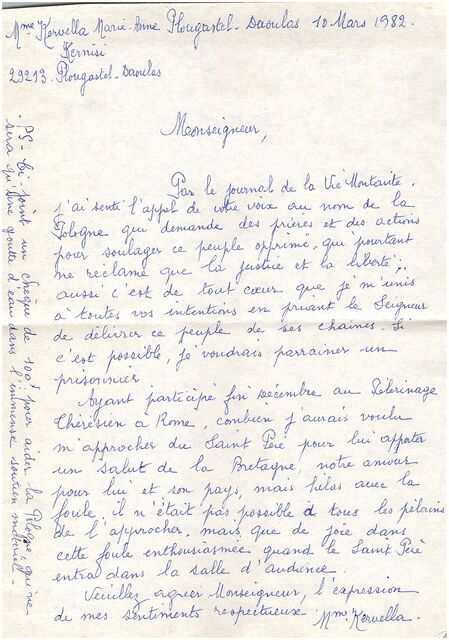 Mme Kervella Marie-Anne Plougastel-Daoulas 10 Mars 1982.
Kernisi
29213. Plougastel-Daoulas
Monseigneur,
Par le journal de la Vie Montante,
j'ai senti l'appel de votre voix au nom de la
Pologne qui demande des prières et des actions
pour soulager ce peuple opprimé, qui pourtant
ne réclame que la justice et la liberté;
aussi c'est de tout cœur que je m'unis
à toutes vos intentions en priant le Seigneur
de délivrer ce peuple de ses chaines. Si
c'est possible, je voudrais parrainer un
prisonnier
Ayant participé fin Décembre au Pélerinage
Thérésien à Rome, combien j'aurais voulu
m'approcher du Saint Père pour lui apporter
un salut de la Bretagne, notre amour
pour lui et son pays, mais hélas avec la
foule il n'était pas possible à tous les pélerins
de l'approcher, mais que de joie dans
cette foule enthousiasmée quand le Saint Père
entra dans la salle d'audience.
Veuillez agréer Monseigneur, l'expression
de mes sentiments respectueux Mme Kervella.
PS - Ci-joint un chèque de 100F pour aider la Pologne, qui ne
sera qu'une goutte d'eau dans l'immense soutien matériel -